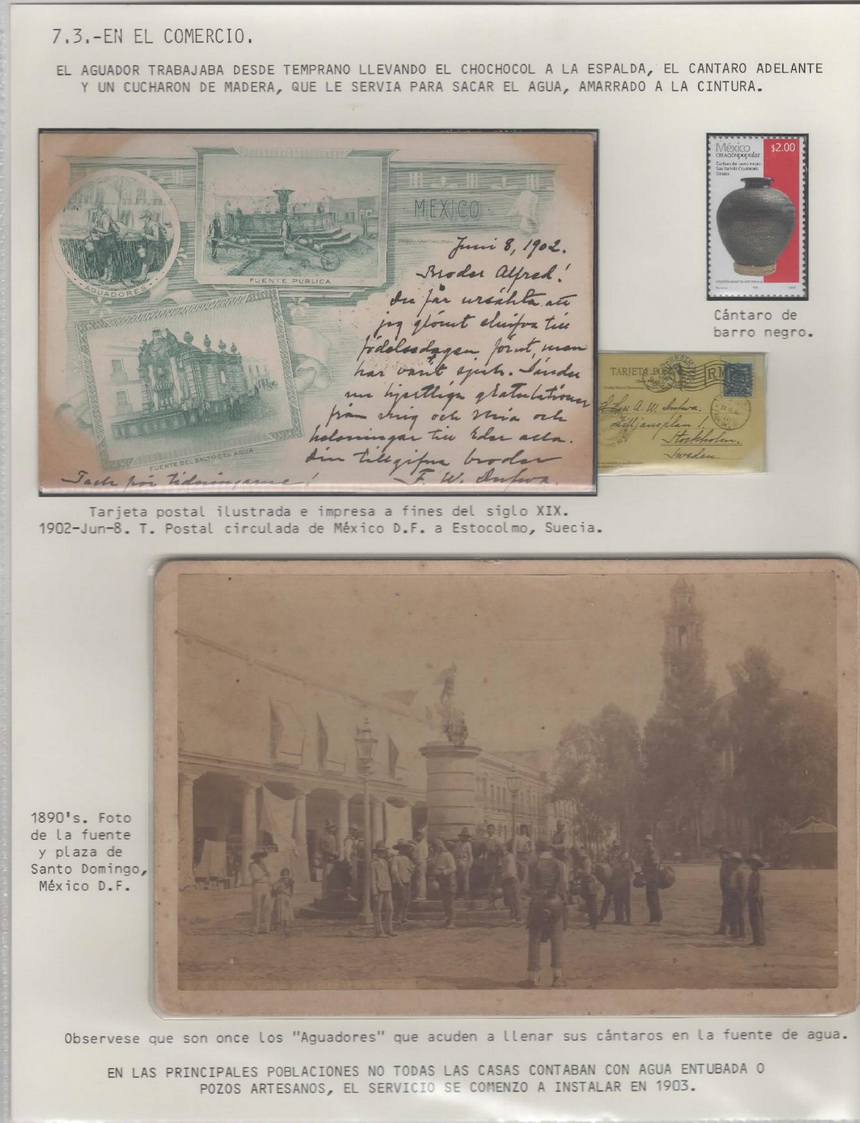 7.3.-EN EL COMERCIO.
EL AGUADOR TRABAJABA DESDE TEMPRANO LLEVANDO EL CHOCHOCOL A LA ESPALDA, EL CANTARO ADELANTE
Y UN CUCHARON DE MADERA, QUE LE SERVIA PARA SACAR EL AGUA, AMARRADO A LA CINTURA.
AGUADORES
FUENTE PUBLICA
MEXICO
FUENTE DEL SALTO EL AGUA
Juni 8, 1902.
Broder Alfred!
Du får ursäkta att
jag glömt skrifva till
födelsedagen förut men
har varit sjuk. Sänder
nu hjertliga gratulationer
från mig och Mia och
helsningar till Eder alla.
Din tillgifna broder
F. W.
Tack för tidningarne!
México $2.00
creación popular
Cántaro de barro negro
Cántaro de
barro negro.
TARJETA
A. W.
Lilljansplan 1,
Stockholm.
Sweden.
Tarjeta postal ilustrada e impresa a fines del siglo XIX.
1902-Jun-8. T. Postal circulada de México D.F. a Estocolmo, Suecia.
1890's. Foto
de la fuente
y plaza de
Santo Domingo,
México D.F.
Observese que son once los "Aguadores" que acuden a llenar sus cántaros en la fuente de agua.
EN LAS PRINCIPALES POBLACIONES NO TODAS LAS CASAS CONTABAN CON AGUA ENTUBADA O
POZOS ARTESANOS, EL SERVICIO SE COMENZO A INSTALAR EN 1903.